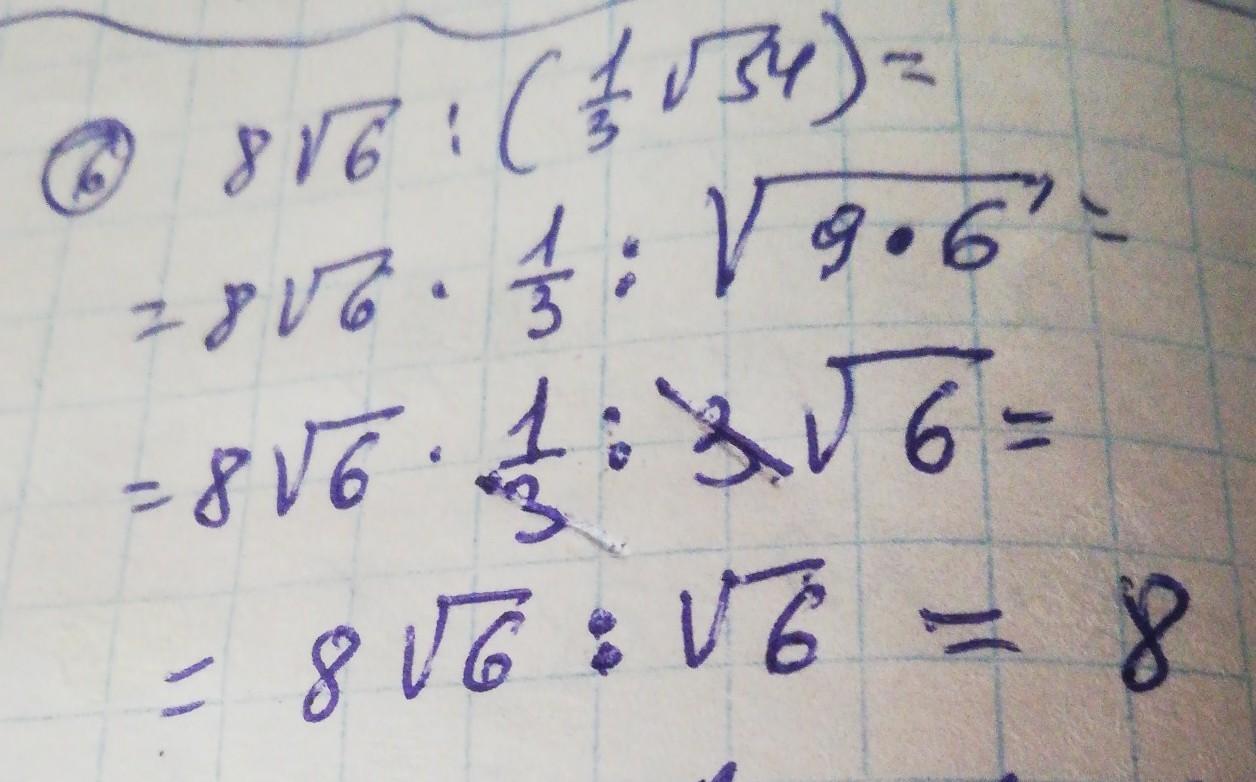 ⑥ 8√6 : (1/3 √54) =
= 8√6 · 1/3 : √9·6 =
= 8√6 · 1/3 : 3√6 =
= 8√6 : √6 = 8